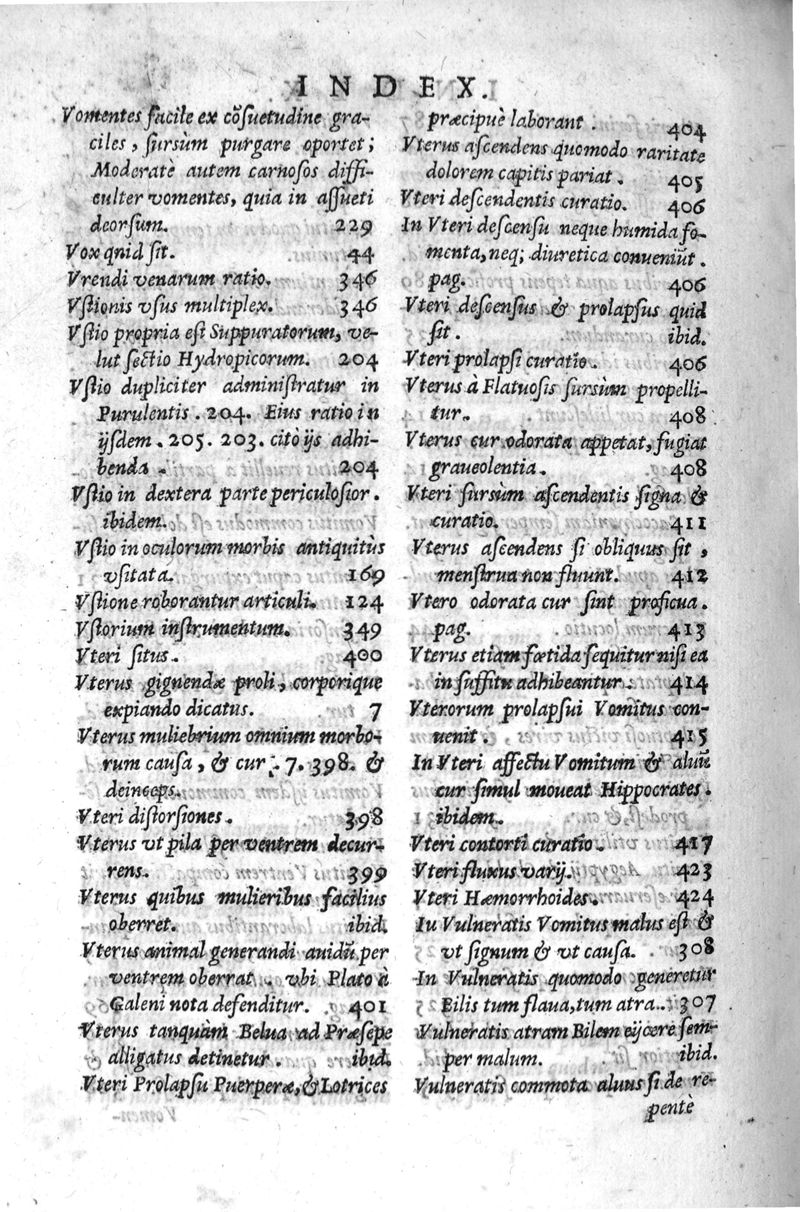 INDEX.
Vomentes facile ex cõsuetudine gra-
ciles, sursùm purgare oportet;
Moderatè autem carnosos diffi-
culter vomentes, quia in assueti
deorsum. 229
Vox quid sit. 44
Vrendi venarum ratio. 346
Vstionis vsus multiplex. 346
Vstio propria est Suppuratorum, ve-
lut sectio Hydropicorum. 204
Vstio dupliciter administratur in
Purulentis. 204. Eius ratio in
ijsdem. 205. 203. citò ijs adhi-
benda. 204
Vstio in dextera parte periculosior.
ibidem.
Vstio in oculorum morbis antiquitùs
vsitata. 169
Vstione roborantur articuli. 124
Vstorium instrumentum. 349
Vteri situs. 400
Vterus gignendæ proli, corporique
expiando dicatus. 7
Vterus muliebrium omnium morbo-
rum causa, & cur. 7. 398. &
deinceps.
Vteri distorsiones. 398
Vterus vt pila per ventrem decur-
rens. 399
Vterus quibus mulieribus facilius
oberret. ibid.
Vterus animal generandi auidũ per
ventrem oberrat. vbi Plato à
Galeni nota defenditur. 401
Vterus tanquàm Belua ad Præsepe
alligatus detinetur. ibid.
Vteri Prolapsu Puerperæ, & Lotrices
præcipuè laborant. 404
Vterus ascendens quomodo raritate
dolorem capitis pariat. 405
Vteri descendentis curatio. 406
In Vteri descensu neque humida fo-
menta, neq; diuretica conueniũt.
pag. 406
Vteri descensus & prolapsus quid
sit. ibid.
Vteri prolapsi curatio. 406
Vterus à Flatuosis sursùm propelli-
tur. 408
Vterus cur odorata appetat, fugiat
graueolentia. 408
Vteri sursùm ascendentis signa &
curatio. 411
Vterus ascendens si obliquus sit,
menstrua non fluunt. 412
Vtero odorata cur sint proficua.
pag. 413
Vterus etiam fœtida sequitur nisi ea
in suffitu adhibeantur. 414
Vterorum prolapsui Vomitus con-
uenit. 415
In Vteri affectu Vomitum & aluũ
cur simul moueat Hippocrates.
ibidem.
Vteri contorti curatio. 417
Vteri fluxus varij. 423
Vteri Hæmorrhoides. 424
Iu Vulneratis Vomitus malus est &
vt signum & vt causa. 308
In Vulneratis quomodo generetur
Bilis tum flaua, tum atra. 307
Vulneratis atram Bilem eijcere sem-
per malum. ibid.
Vulneratis commota aluus si de re-
pentè